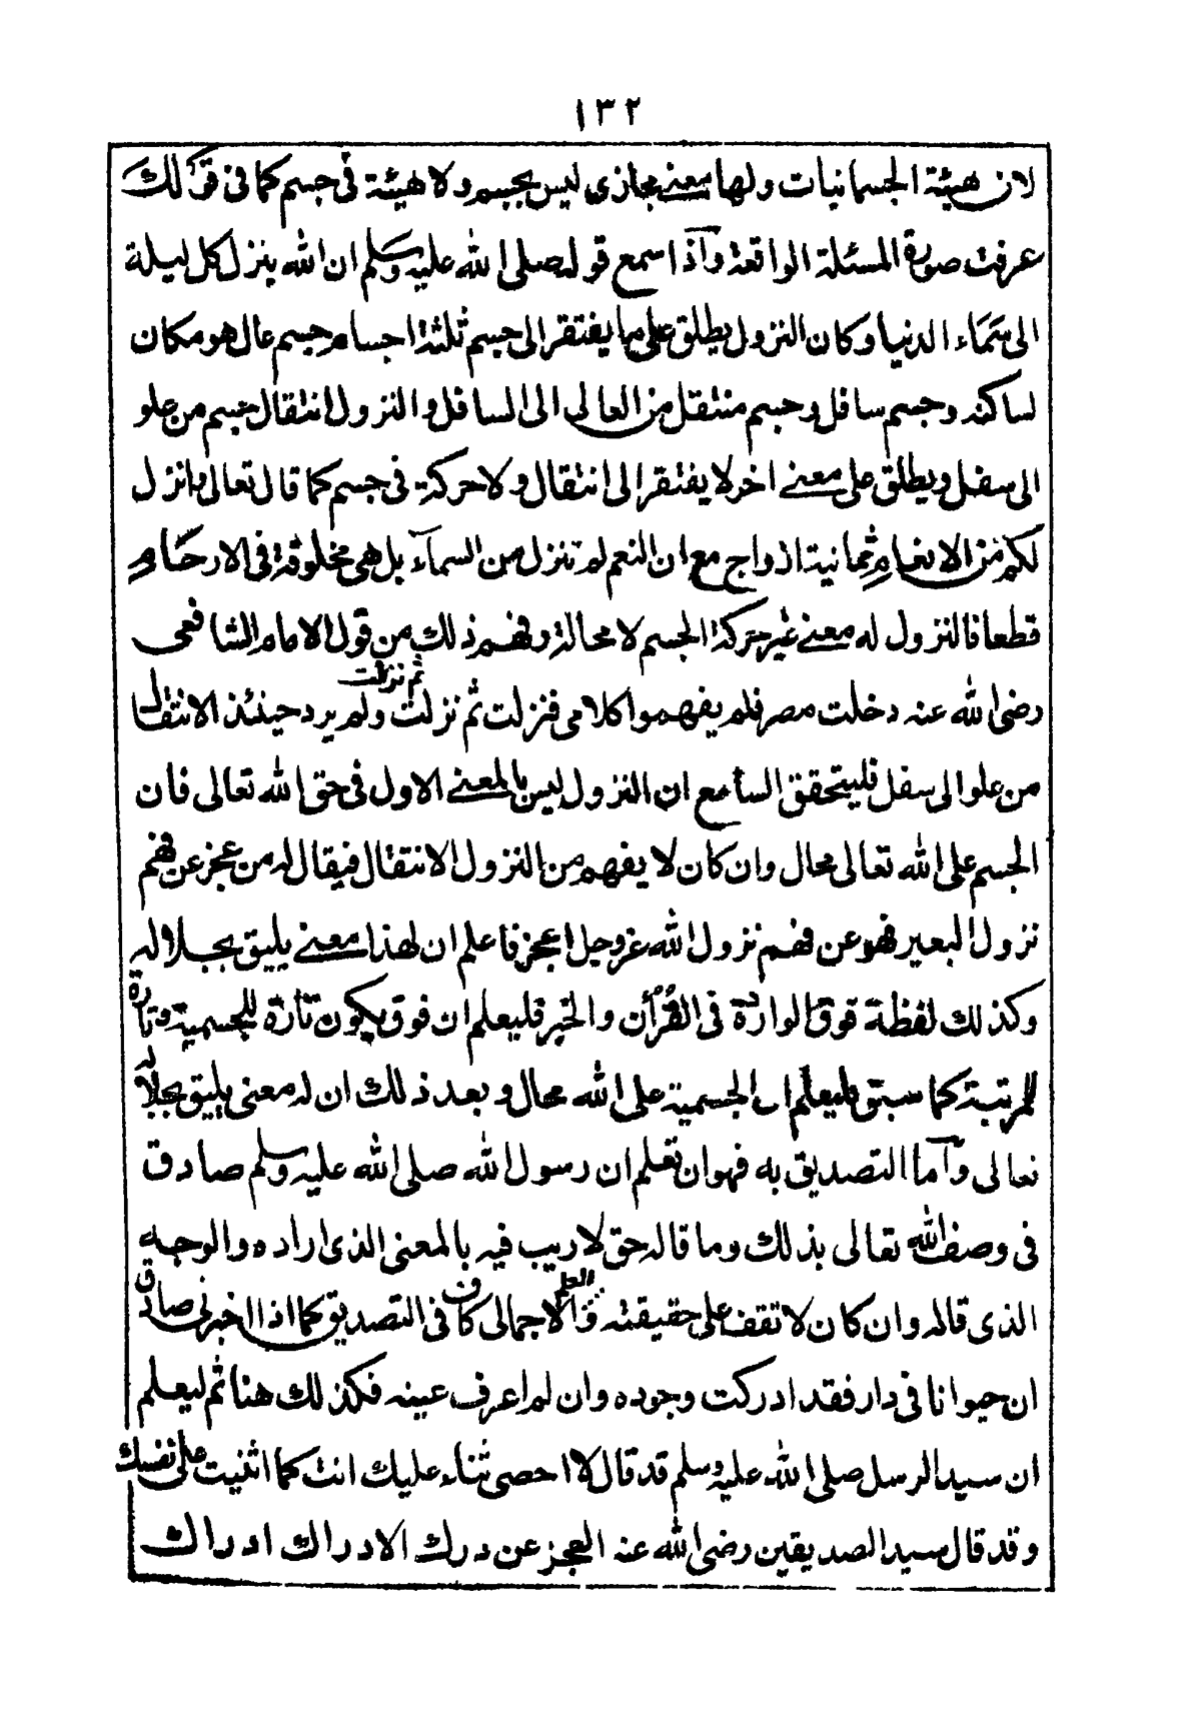 ١٣٢
لان هيئة الجسمانيات ولها معنے مجازى ليس بجسم ولا هيئة فى جسم كما فى قولك
عرفت صورة المسئلة الواقعة وآذا سمع قوله صلى الله عليه وسلم ان الله ينزل كل ليلة
الى سماء الدنيا وكان النزول يطلق على ما يفتقر الى جسم ثلثة اجسام جسم عال هو مكان
لساكنه وجسم سافل وجسم منتقل من العالى الى السافل والنزول انتقال جسم من علو
الى سفل ويطلق على معنے اخر لا يفتقر الى انتقال ولا حركة فى جسم كما قال تعالى وانزل
لكم من الانعام ثمانية ازواج مع ان النعم لم تنزل من السمآء بل هى مخلوقة فى الارحام
قطعا فالنزول له معنے غير حركة الجسم لا محالة وفهم ذلك من قول الامام الشافعى
رضى الله عنه دخلت مصر فلم يفهموا كلامى فنزلت ثم نزلت ثم نزلت ولم يرد حينئذ الانتقال
من علو الى سفل فليتحقق السامع ان النزول ليس بالمعنے الاول فى حق الله تعالى فان
الجسم على الله تعالى محال وان كان لا يفهم من النزول الا نتقال فيقال له من عجز عن فهم
نزول البعير فهو عن فهم نزول الله عزوجل اعجز فاعلم ان لهذا معنے يليق بجلاله
وكذلك لفظة فوق الواردة فى القرأن والخبر فليعلم ان فوق يكون تارة للجسمية وتارة
للمرتبة كما سبق فليعلم ان الجسمية على الله محال وبعد ذلك ان له معنى يليق بجلاله
تعالى وآما التصديق به فهو ان تعلم ان رسول الله صلى الله عليه وسلم صادق
فى وصف الله تعالى بذلك وما قاله حق لا ريب فيه بالمعنى الذى اراده والوجه
الذى قاله وان كان لا تقف على حقيقته والعلم الاجمالى كاف فى التصديق كما اذا اخبرنى صادق
ان حيوانا فى دار فقد ادركت وجوده وان لم اعرف عينه فكذلك هنا ثم ليعلم
ان سيد الرسل صلى الله عليه وسلم قد قال لا احصى ثناء عليك انت كما اثنيت على نفسك
وقد قال سيد الصديقين رضى الله عنه العجز عن درك الادراك ادراك